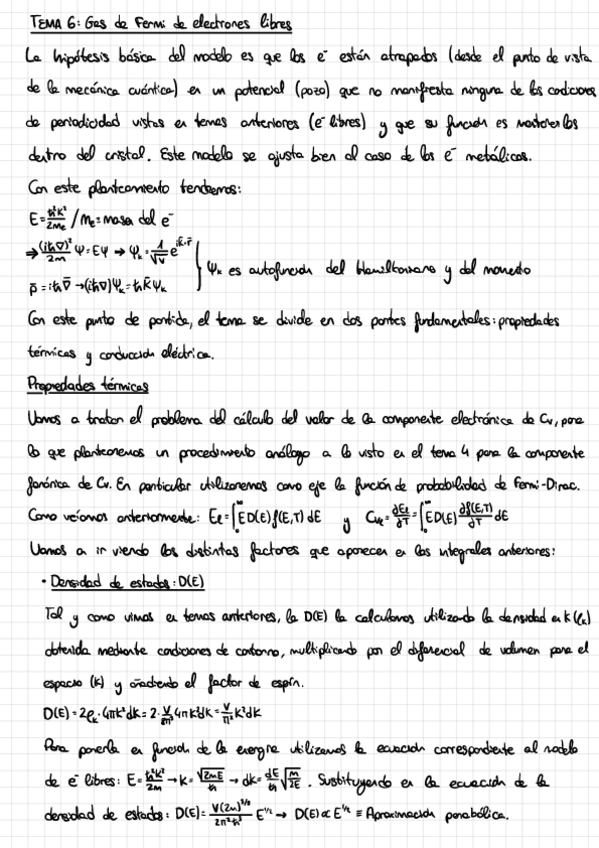 TEMA 6: Gas de Fermi de electrones libres
La hipótesis básica del modelo es que los e⁻ están atrapados (desde el punto de vista
de la mecánica cuántica) en un potencial (pozo) que no manifiesta ninguna de las condiciones
de periodicidad vistas en temas anteriores (e⁻ libres) y que su función es mantenerlos
dentro del cristal. Este modelo se ajusta bien al caso de los e⁻ metálicos.
Con este planteamiento tendremos:
E = ħ²k²/2mₑ / mₑ = masa del e⁻
⇒ (iħ∇)²/2m Ψ = EΨ → Ψₖ = 1/√V e^{ik̄·r̄}
p̄ = iħ∇̄ → (iħ∇)Ψₖ = ħk̄Ψₖ } Ψₖ es autofunción del Hamiltoniano y del momento
Con este punto de partida, el tema se divide en dos partes fundamentales: propiedades
térmicas y conducción eléctrica.
Propiedades térmicas
Vamos a tratar el problema del cálculo del valor de la componente electrónica de Cv, para
lo que plantearemos un procedimiento análogo a lo visto en el tema 4 para la componente
fonónica de Cv. En particular utilizaremos como eje la función de probabilidad de Fermi-Dirac.
Como veíamos anteriormente: E = ∫^∞ E D(E) f(E,T) dE y C = ∂E/∂T = ∫^∞ E D(E) ∂f(E,T)/∂T dE
Vamos a ir viendo los distintos factores que aparecen en las integrales anteriores:
• Densidad de estados: D(E)
Tal y como vimos en temas anteriores, la D(E) la calculamos utilizando la densidad en k (ρₖ)
obtenida mediante condiciones de contorno, multiplicando por el diferencial de volumen para el
espacio (k) y añadiendo el factor de espín.
D(E) = 2ρₖ · 4πk²dk = 2 · V/8π³ 4πk²dk = V/π² k²dk
Para ponerla en función de la energía utilizamos la ecuación correspondiente al modelo
de e⁻ libres: E = ħ²k²/2m → k = √2mE/ħ → dk = dE/ħ √m/2E . Sustituyendo en la ecuación de la
densidad de estados: D(E) = V(2m)^{3/2}/2π²ħ³ E^{1/2} → D(E) ∝ E^{1/2} ≡ Aproximación parabólica.